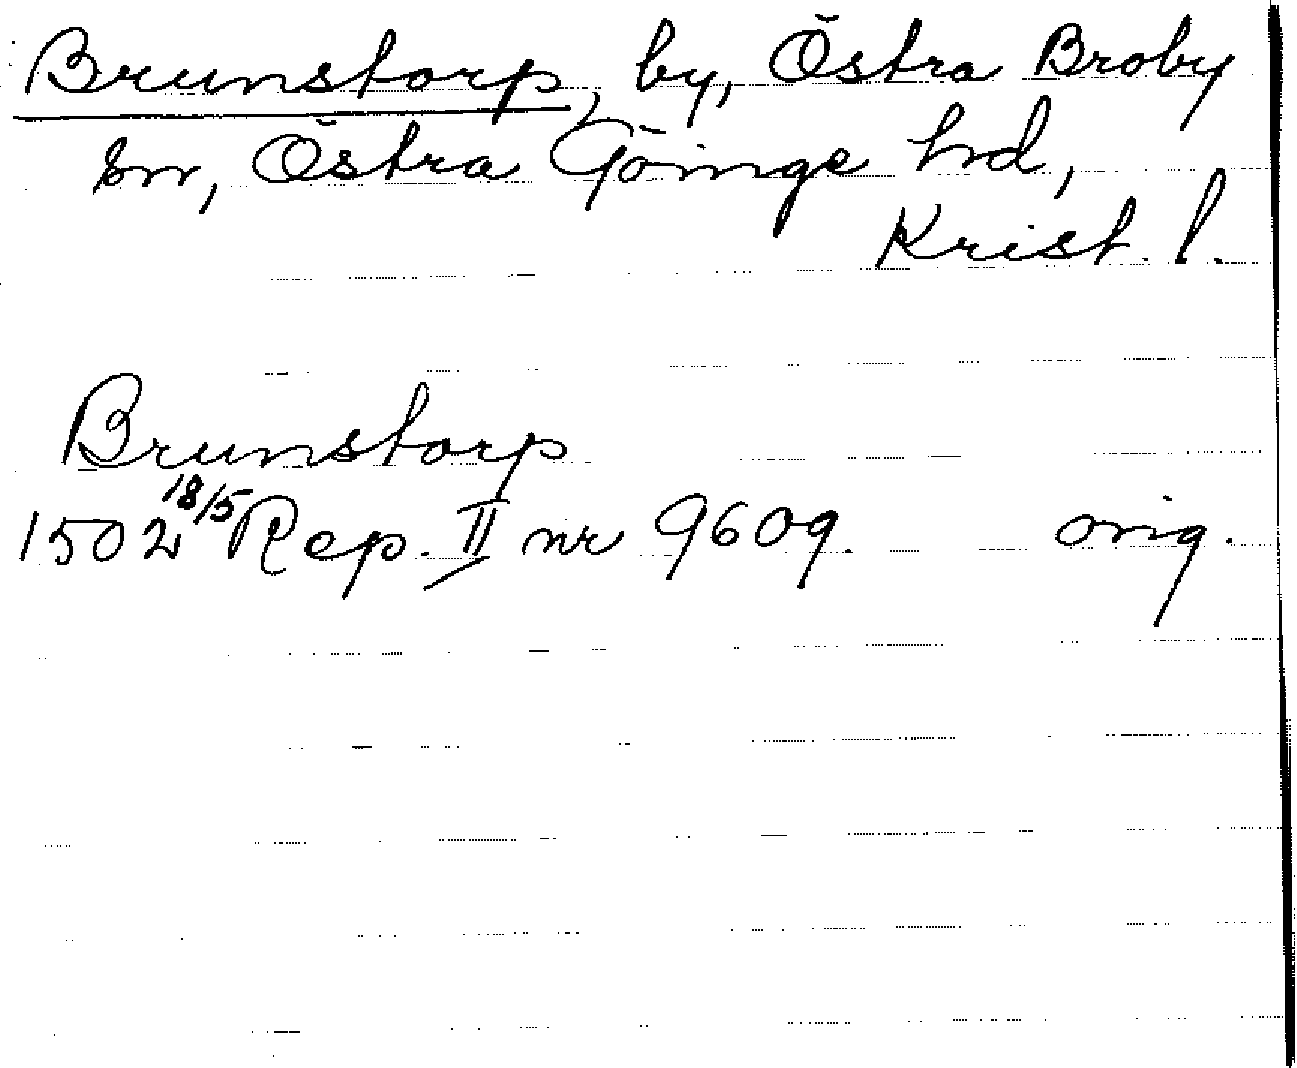 Brunstorp, by, Östra Broby
sn, Östra Göinge hd,
Krist. l.
Brunstorp
1502 18/5 Rep. II nr 9609. orig.